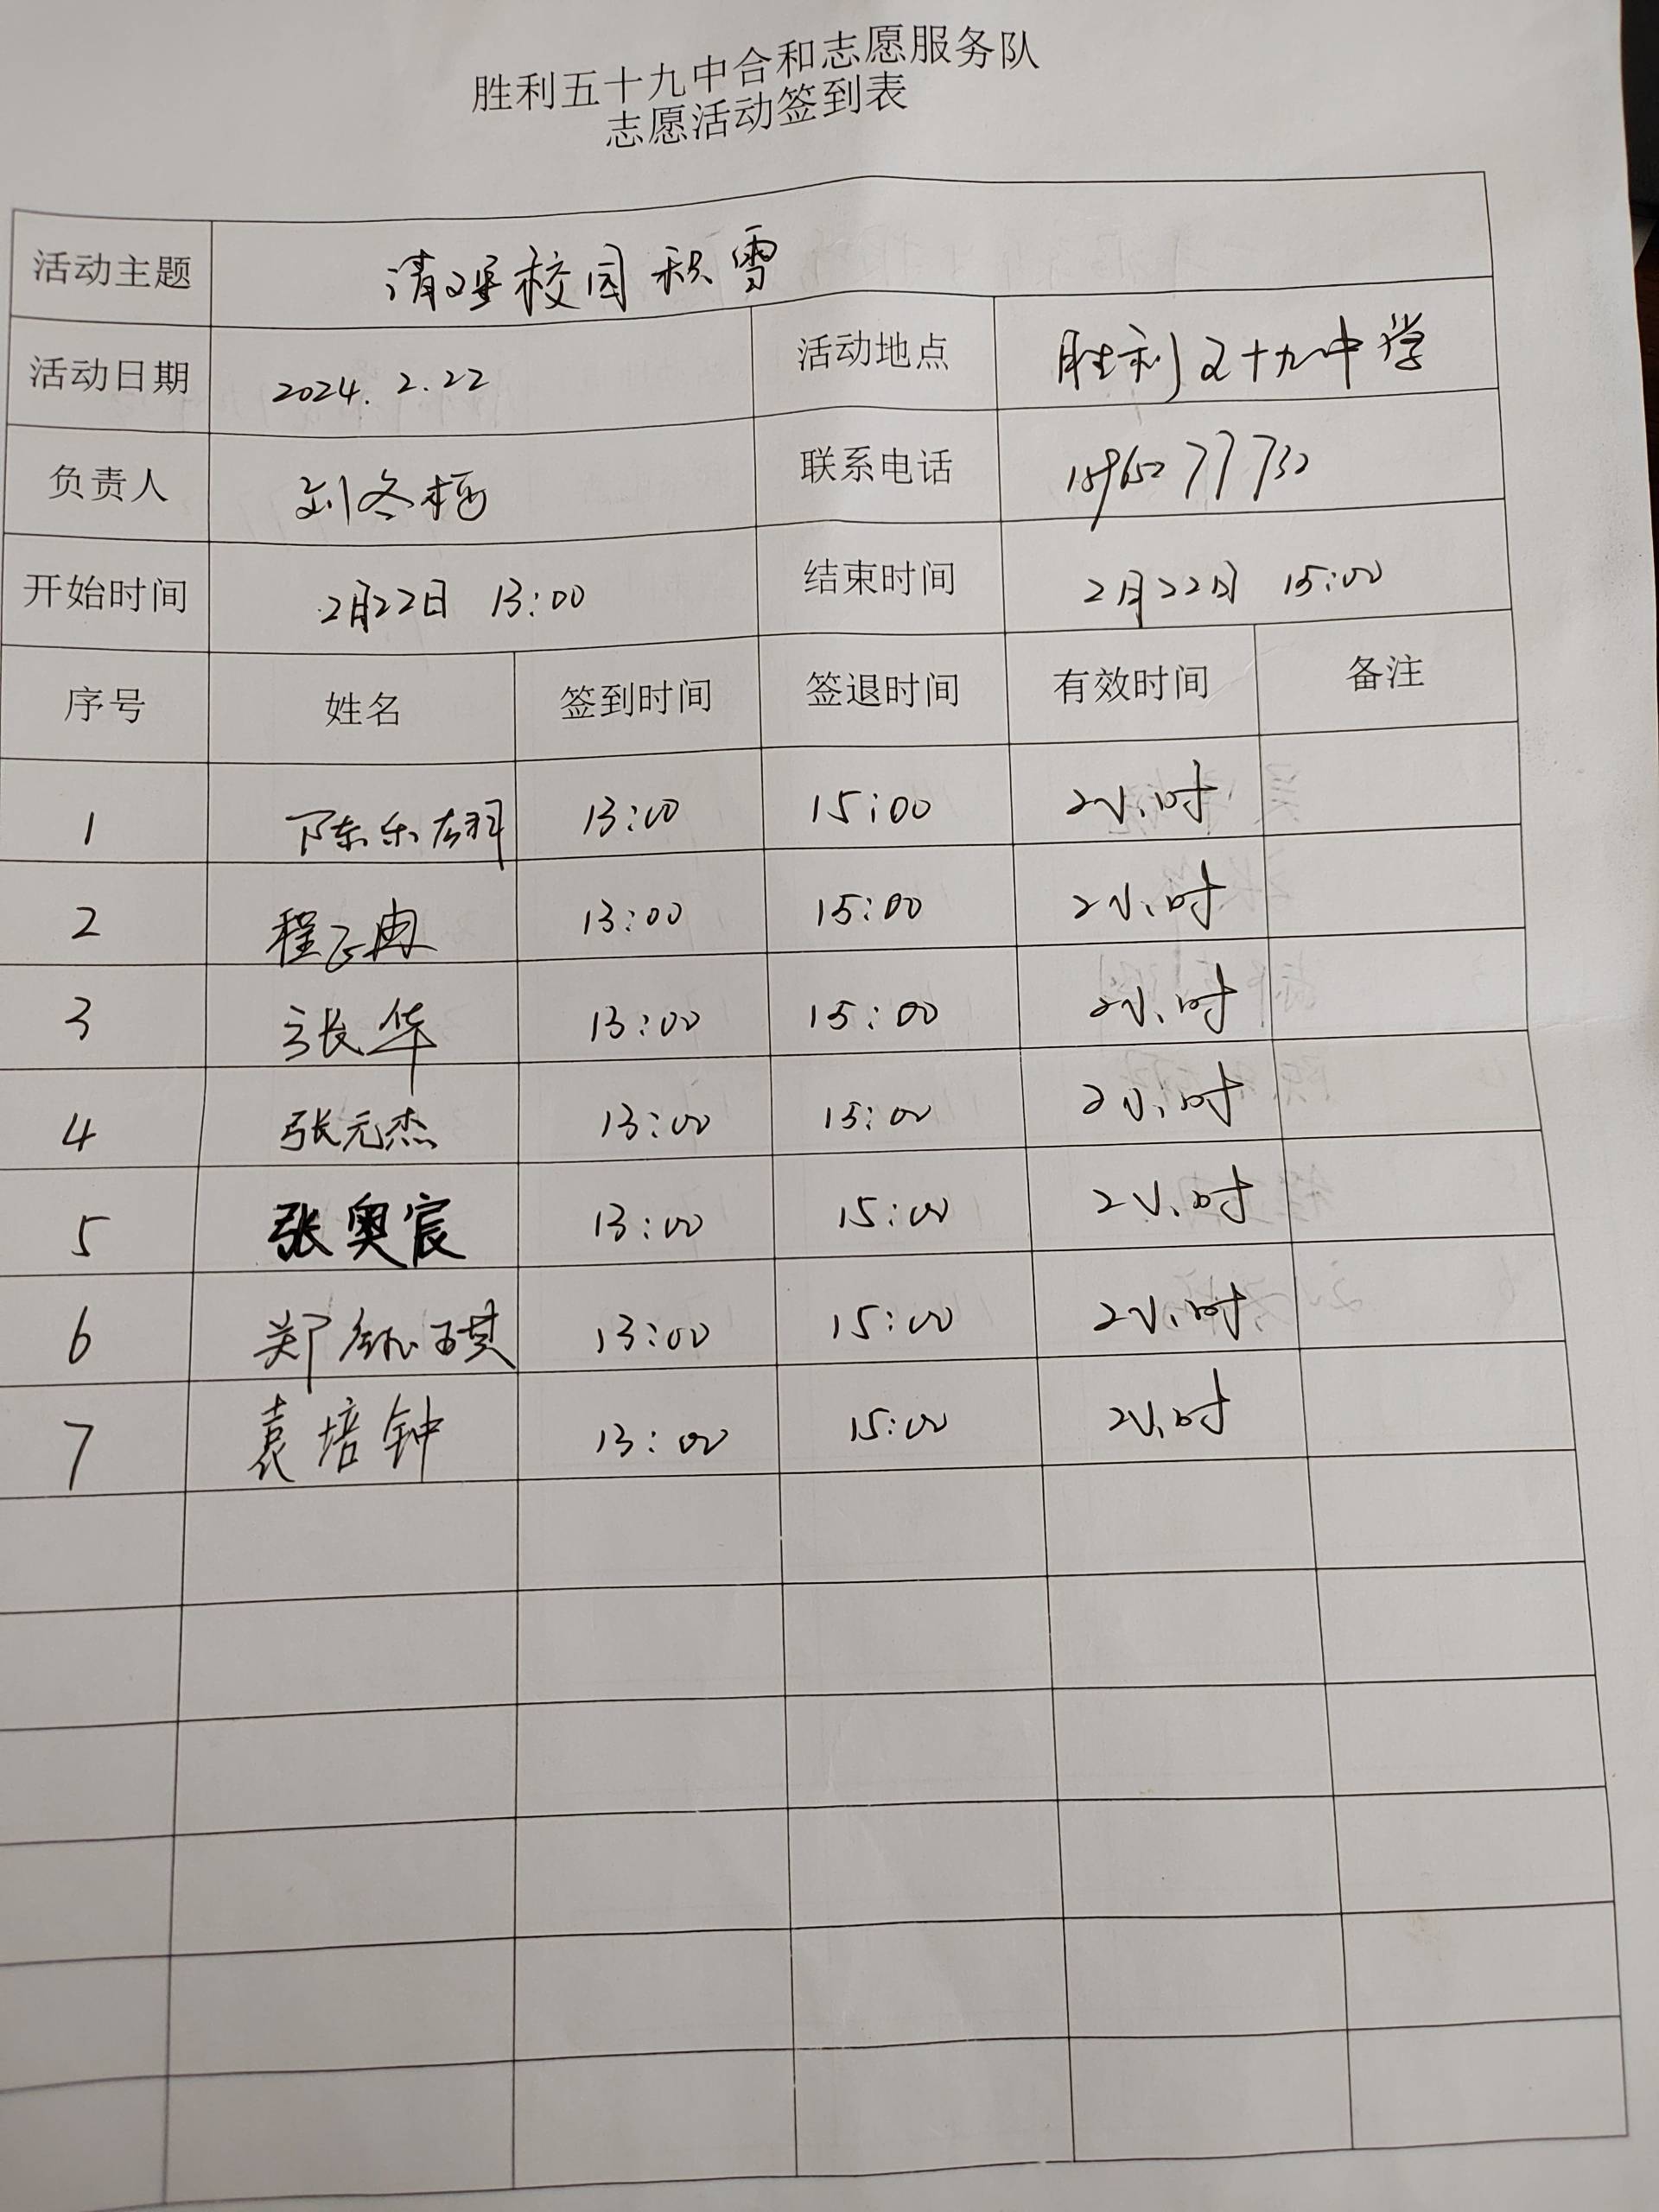 胜利五十九中合和志愿服务队
志愿活动签到表
活动主题 清理校园积雪
活动日期 2024.2.22 活动地点 胜利五十九中学
负责人 刘冬梅 联系电话
开始时间 2月22日 13:00 结束时间 2月22日 15:00
序号 姓名 签到时间 签退时间 有效时间 备注
1 陈乐翔 13:00 15:00 2小时
2 程飞冉 13:00 15:00 2小时
3 张华 13:00 15:00 2小时
4 张元杰 13:00 15:00 2小时
5 张奥宸 13:00 15:00 2小时
6 郑钰琪 13:00 15:00 2小时
7 袁培钟 13:00 15:00 2小时